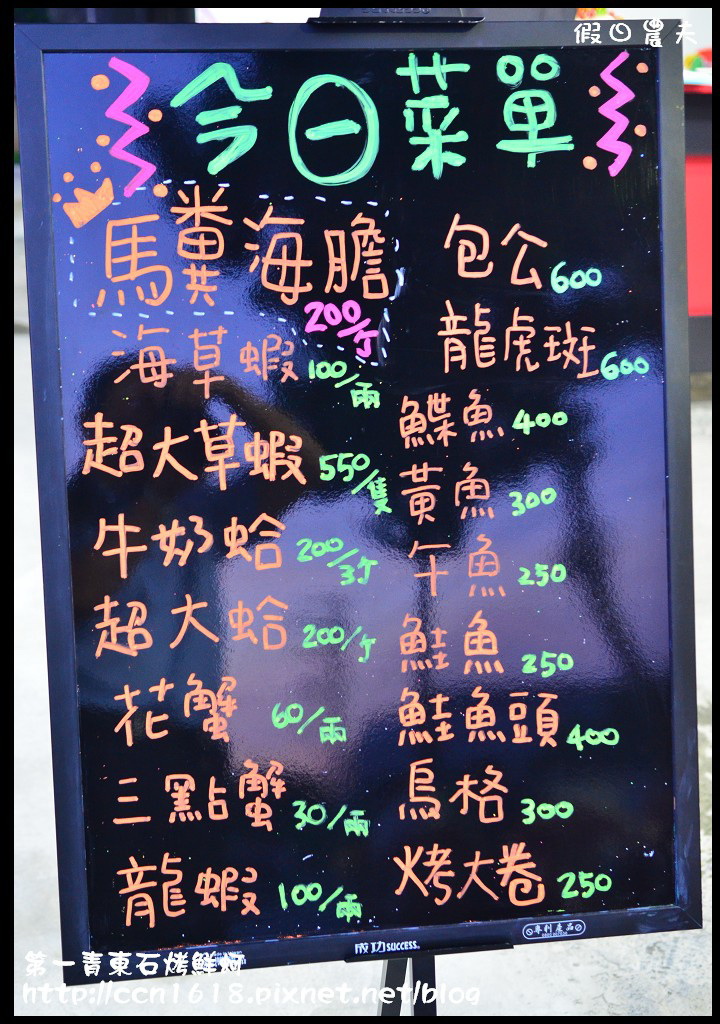 假日農夫
今日菜單
馬糞海膽 200/ケ
海草蝦 100/兩
超大草蝦 550/隻
牛奶蛤 200/3ケ
超大蛤 200/ケ
花蟹 60/兩
三點蟹 30/兩
龍蝦 100/兩
包公 600
龍虎斑 600
鰈魚 400
黃魚 300
午魚 250
鮭魚 250
鮭魚頭 400
烏格 300
烤大卷 250
專利產品
成功 SUCCESS.
第一青東石烤鮮蚵
http://ccn1618.pixnet.net/blog